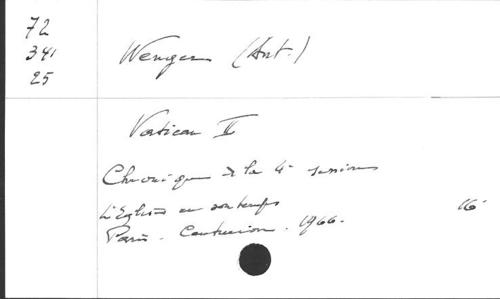 72
341
25
Wenger (Ant.)
Vatican II
Chronique de la 4e session
L'Eglise en son temps
Paris. Centurion. 1966. 16